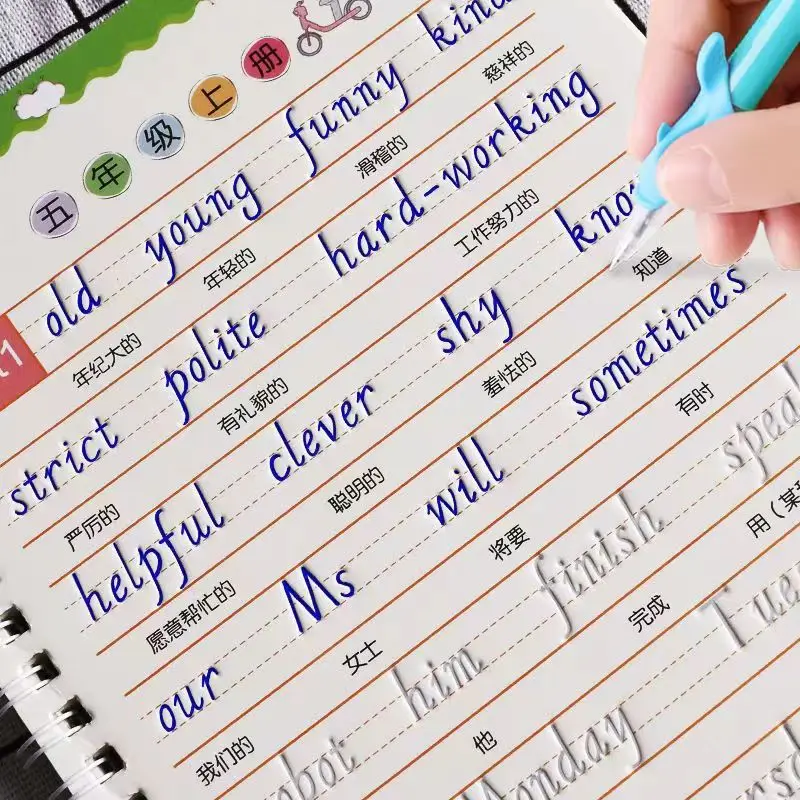 五年级上册
old young funny
年纪大的 年轻的 滑稽的 慈祥的
strict polite hard-working
严厉的 有礼貌的 工作努力的
helpful clever shy
愿意帮忙的 聪明的 羞怯的 知道
our Ms will sometimes
我们的 女士 将要 有时
him finish
他 完成
Monday